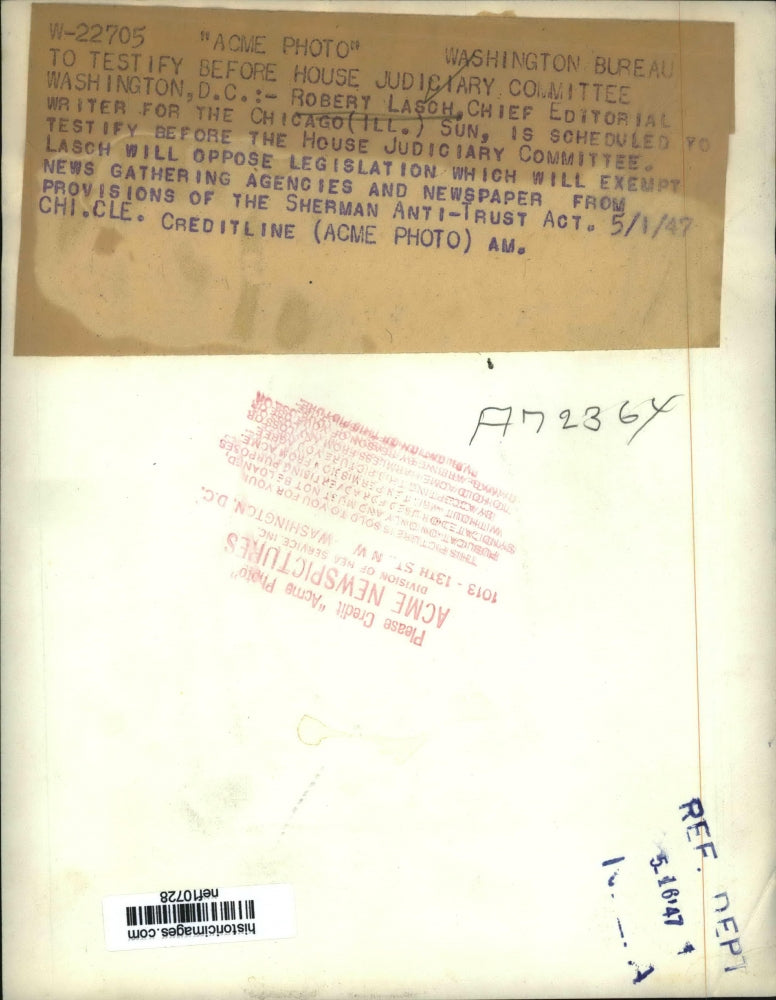 W-22705 "ACME PHOTO" WASHINGTON BUREAU
TO TESTIFY BEFORE HOUSE JUDICIARY COMMITTEE
WASHINGTON, D.C.:- ROBERT LASCH, CHIEF EDITORIAL
WRITER FOR THE CHICAGO (ILL.) SUN, IS SCHEDULED TO
TESTIFY BEFORE THE HOUSE JUDICIARY COMMITTEE.
LASCH WILL OPPOSE LEGISLATION WHICH WILL EXEMPT
NEWS GATHERING AGENCIES AND NEWSPAPER FROM
PROVISIONS OF THE SHERMAN ANTI-TRUST ACT. 5/1/47
CHI.CLE. CREDITLINE (ACME PHOTO) AM.
A72364
Please Credit "Acme Photo"
ACME NEWSPICTURES
DIVISION OF NEA SERVICE, INC.
1013 - 13TH ST., N.W. WASHINGTON, D.C.
THIS PICTURE IS SOLD TO YOU FOR YOUR
PUBLICATION ONLY AND MUST NOT BE LOANED,
SYNDICATED OR USED FOR ADVERTISING PURPOSES
WITHOUT WRITTEN PERMISSION FROM ACME.
REF. DEPT
5-16'47
historicimages.com
nef10728